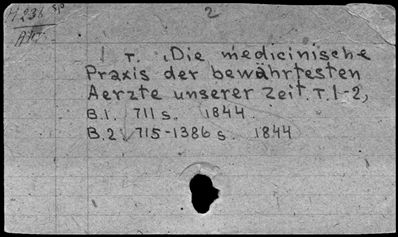 2
1 т. „Die medicinische
Praxis der bewährtesten
Aerzte unserer Zeit. т. 1-2,
B.1. 711 s. 1844.
B.2. 715-1386 s. 1844